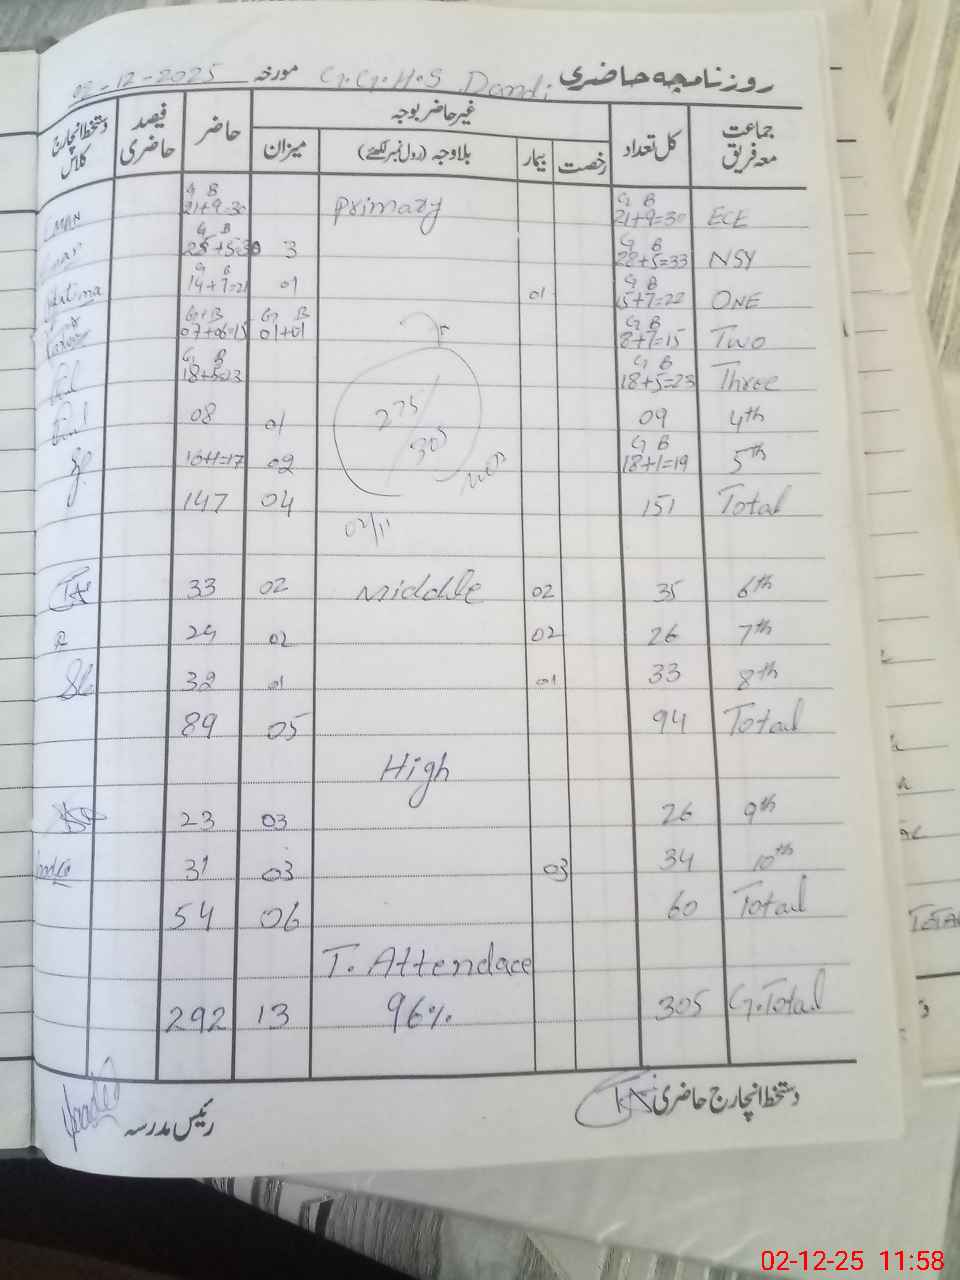 روزنامچہ حاضری G.G.H.S Dandi مورخہ 02-12-2025
جماعت معہ فریق کل تعداد غیر حاضر بوجہ حاضر فیصد حاضری دستخط انچارج کلاس
رخصت بیمار بلاوجہ (رول نمبر لکھئے) میزان
Primary
ECE G B 21+9=30 G B 21+9=30
NSY G B 28+5=33 3 G B 25+5=30
ONE G B 15+7=22 01 01 G B 14+7=21
Two G B 8+7=15 G B 01+01 G+B 07+06=15
Three G B 18+5=23 G B 18+5=23
4th 09 01 08
5th G B 18+1=19 02 16+1=17
Total 151 04 147
275/305
02/11
Middle
6th 35 02 02 33
7th 26 02 02 24
8th 33 01 01 32
Total 94 05 89
High
9th 26 03 23
10th 34 03 03 31
Total 60 06 54
T. Attendace
G.Total 305 96% 13 292
دستخط انچارج حاضری رئیس مدرسہ
02-12-25 11:58